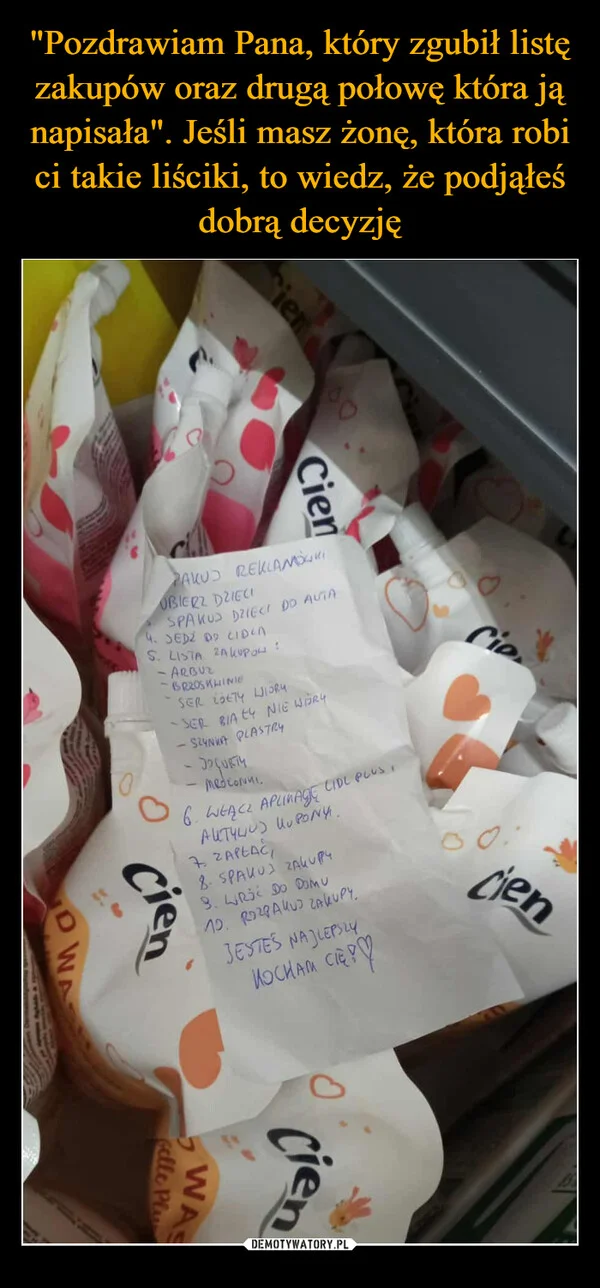 "Pozdrawiam Pana, który zgubił listę
zakupów oraz drugą połowę która ją
napisała". Jeśli masz żonę, która robi
ci takie liściki, to wiedz, że podjąłeś
dobrą decyzję
Cien
Cien
PAKUJ REKLAMÓWKI
UBIERZ DZIECI
SPAKUJ DZIECI DO AUTA
4. JEDŹ DO LIDLA
5. LISTA ZAKUPÓW:
- ARBUZ
- BRZOSKWINIE
- SER ŻÓŁTY WIÓRY
- SER BIAŁY NIE WIÓRY
- SZYNKA PLASTRY
- JOGURTY
- MROŻONKI.
6. WŁĄCZ APLIKACJĘ LIDL PLUS,
AKTYWUJ KUPONY.
7. ZAPŁAĆ,
8. SPAKUJ ZAKUPY
9. WRÓĆ DO DOMU
10. ROZPAKUJ ZAKUPY.
JESTEŚ NAJLEPSZY
KOCHAM CIĘ!
Cien
Cien
Cien
DEMOTYWATORY.PL